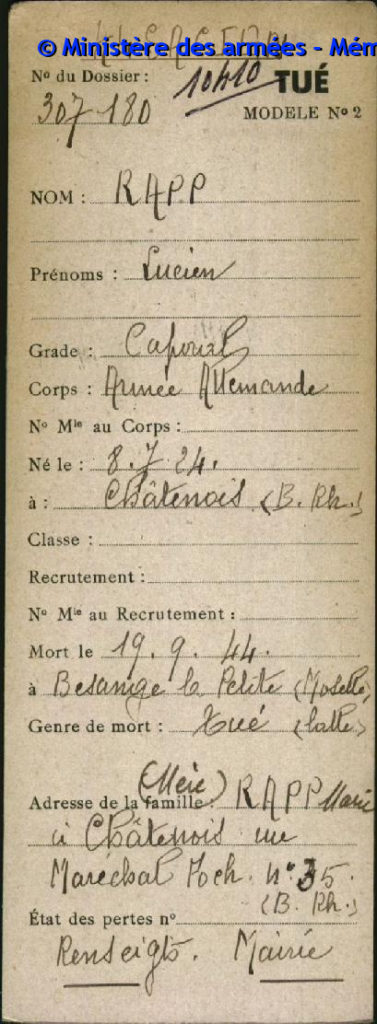 ALSACIEN
© Ministère des armées - Mém
N° du Dossier :
10410
TUÉ
307-180
MODELE N° 2
NOM : RAPP
Prénoms : Lucien
Grade : Caporal
Corps : Armée Allemande
N° Mle au Corps :
Né le : 8.7 24.
à : Châtenois (B. Rh.)
Classe :
Recrutement :
N° Mle au Recrutement :
Mort le 19. 9. 44.
à Besange la Petite (Moselle)
Genre de mort : Tué (balle)
(Mère)
Adresse de la famille : RAPP Marie
à Châtenois rue
Maréchal Foch. N° 35.
(B. Rh.)
État des pertes n°
Renseigts. Mairie